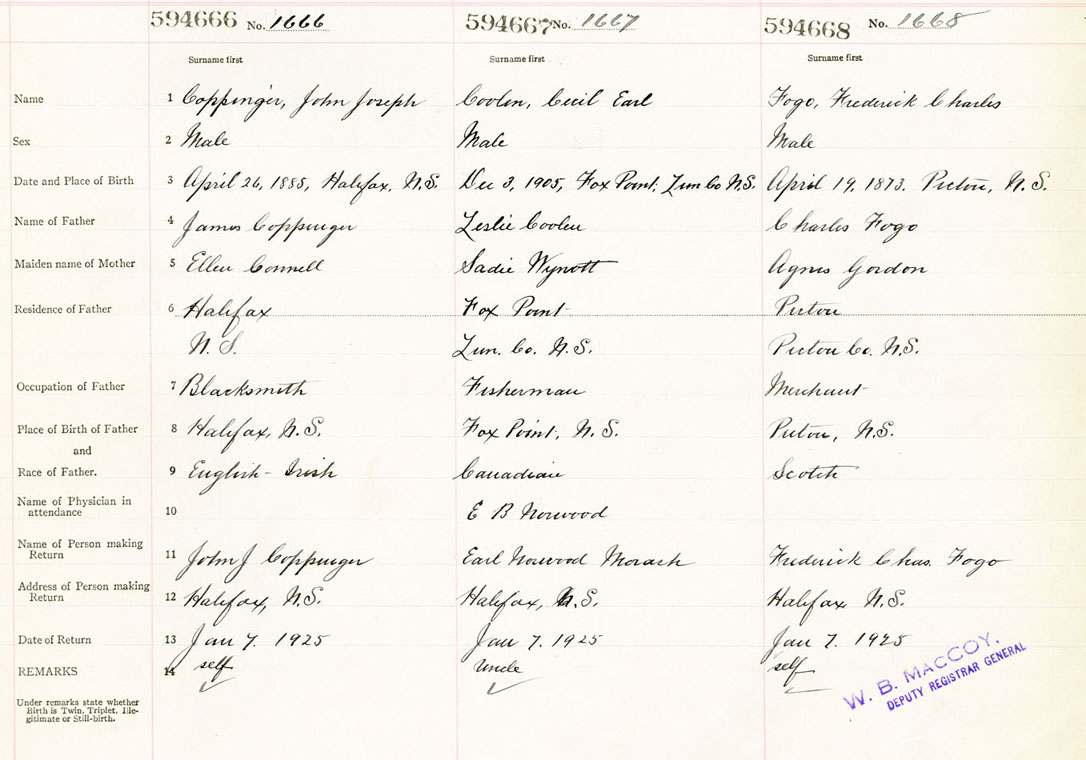 594666 No. 1666 594667 No. 1667 594668 No. 1668
Surname first Surname first Surname first
Name 1 Coppinger, John Joseph Coolen, Cecil Earl Fogo, Frederick Charles
Sex 2 Male Male Male
Date and Place of Birth 3 April 26, 1885, Halifax, N.S. Dec 3, 1905, Fox Point, Lun Co N.S. April 19, 1873. Pictou, N.S.
Name of Father 4 James Coppinger Leslie Coolen Charles Fogo
Maiden name of Mother 5 Ellen Connell Sadie Wynott Agnes Gordon
Residence of Father 6 Halifax Fox Point Pictou
N.S. Lun. Co. N.S. Pictou Co. N.S.
Occupation of Father 7 Blacksmith Fisherman Merchant
Place of Birth of Father 8 Halifax, N.S. Fox Point, N.S. Pictou, N.S.
and
Race of Father. 9 English-Irish Canadian Scotch
Name of Physician in
attendance 10 E B Norwood
Name of Person making
Return 11 John J Coppinger Earl Norwood Morash Frederick Chas. Fogo
Address of Person making
Return 12 Halifax, N.S. Halifax, N.S. Halifax N.S.
Date of Return 13 Jan 7. 1925 Jan 7. 1925 Jan 7. 1925
REMARKS 14 self uncle self
Under remarks state whether
Birth is Twin, Triplet, Ille-
gitimate or Still-birth.
W. B. MACCOY,
DEPUTY REGISTRAR GENERAL